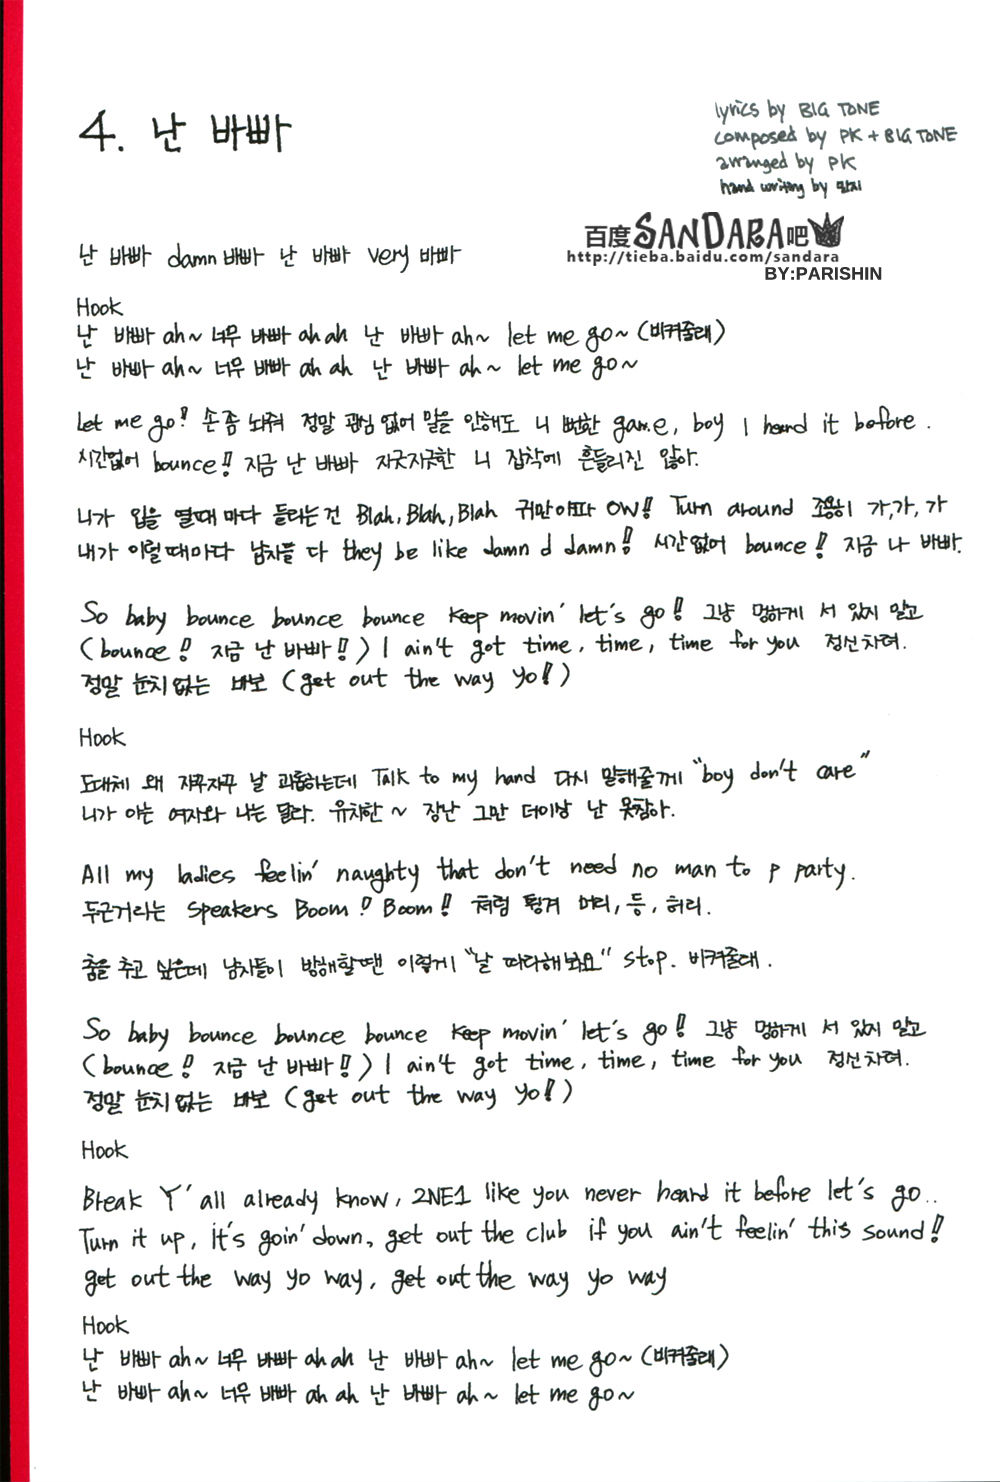 4. 난 바빠
lyrics by BIG TONE
composed by PK + BIG TONE
arranged by PK
hand writing by 민지
百度SANDARA吧
http://tieba.baidu.com/sandara
BY:PARISHIN
난 바빠 damn 바빠 난 바빠 very 바빠
Hook
난 바빠 ah~ 너무 바빠 ah ah 난 바빠 ah~ let me go~ (비켜줄래)
난 바빠 ah~ 너무 바빠 ah ah 난 바빠 ah~ let me go~
Let me go! 손 좀 놔줘 정말 관심 없어 말을 안해도 니 뻔한 game, boy I heard it before.
시간없어 bounce! 지금 난 바빠 지긋지긋한 니 집착에 흔들리진 않아.
니가 입을 열때 마다 들리는건 Blah, Blah, Blah 귀만아파 OW! Turn around 조용히 가,가,가
내가 이럴때마다 남자들 다 they be like damn d damn! 시간없어 bounce! 지금 나 바빠.
So baby bounce bounce bounce keep movin' let's go! 그냥 멍하게 서 있지 말고
(bounce! 지금 난 바빠!!) I ain't got time, time, time for you 정신차려.
정말 눈치없는 바보 (get out the way yo!)
Hook
도대체 왜 자꾸자꾸 날 괴롭히는데 Talk to my hand 다시 말해줄께 "boy don't care"
니가 아는 여자와 나는 달라. 유치한 ~ 장난 그만 더이상 난 못참아.
All my ladies feelin' naughty that don't need no man to p party.
두근거리는 speakers Boom! Boom! 처럼 튕겨 머리, 등, 허리.
춤을 추고 싶은데 남자들이 방해할땐 이렇게 "날 따라해봐요" stop. 비켜줄래.
So baby bounce bounce bounce keep movin' let's go! 그냥 멍하게 서 있지 말고
(bounce! 지금 난 바빠!!) I ain't got time, time, time for you 정신차려.
정말 눈치없는 바보 (get out the way yo!)
Hook
Break Y'all already know, 2NE1 like you never heard it before let's go..
Turn it up, it's goin' down, get out the club if you ain't feelin' this sound!
get out the way yo way, get out the way yo way
Hook
난 바빠 ah~ 너무 바빠 ah ah 난 바빠 ah~ let me go~ (비켜줄래)
난 바빠 ah~ 너무 바빠 ah ah 난 바빠 ah~ let me go~